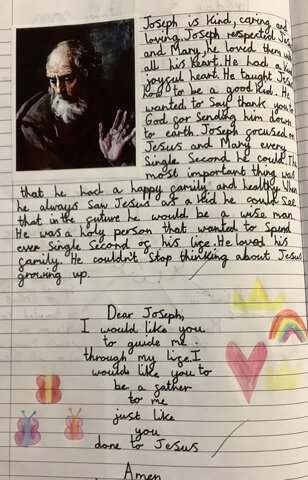 Joseph is kind, caring and
loving. Joseph respected Jesus
and Mary, he loved them with
all his heart. He had a
joyful heart. He taught Jesus
how to be a good kid. He
wanted to say thank you to
God for sending him down
to earth. Joseph focused on
Jesus and Mary every
single second he could. The
most important thing was
that he had a happy family and healthy. When
he always saw Jesus as a kid he could see
that in the future he would be a wise man.
He was a holy person that wanted to spend
ever single second of his life. He loved his
family. He couldn't stop thinking about Jesus
growing up.
Dear Joseph,
I would like you
to guide me
through my life. I
would like you to
be a father
to me
just like
you
done to Jesus
Amen